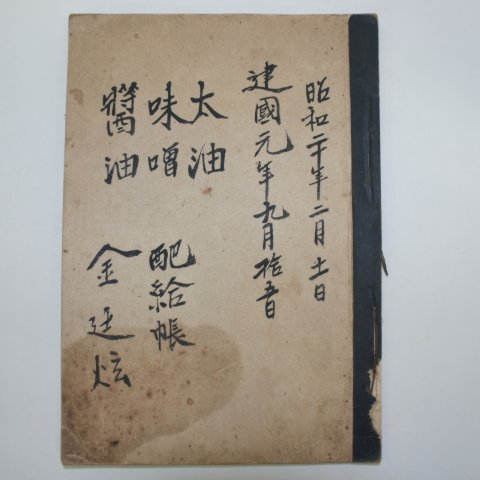 昭和二十年二月十一日
建國元年九月拾五日
太油
味噌
醬油
配給帳
金廷炫